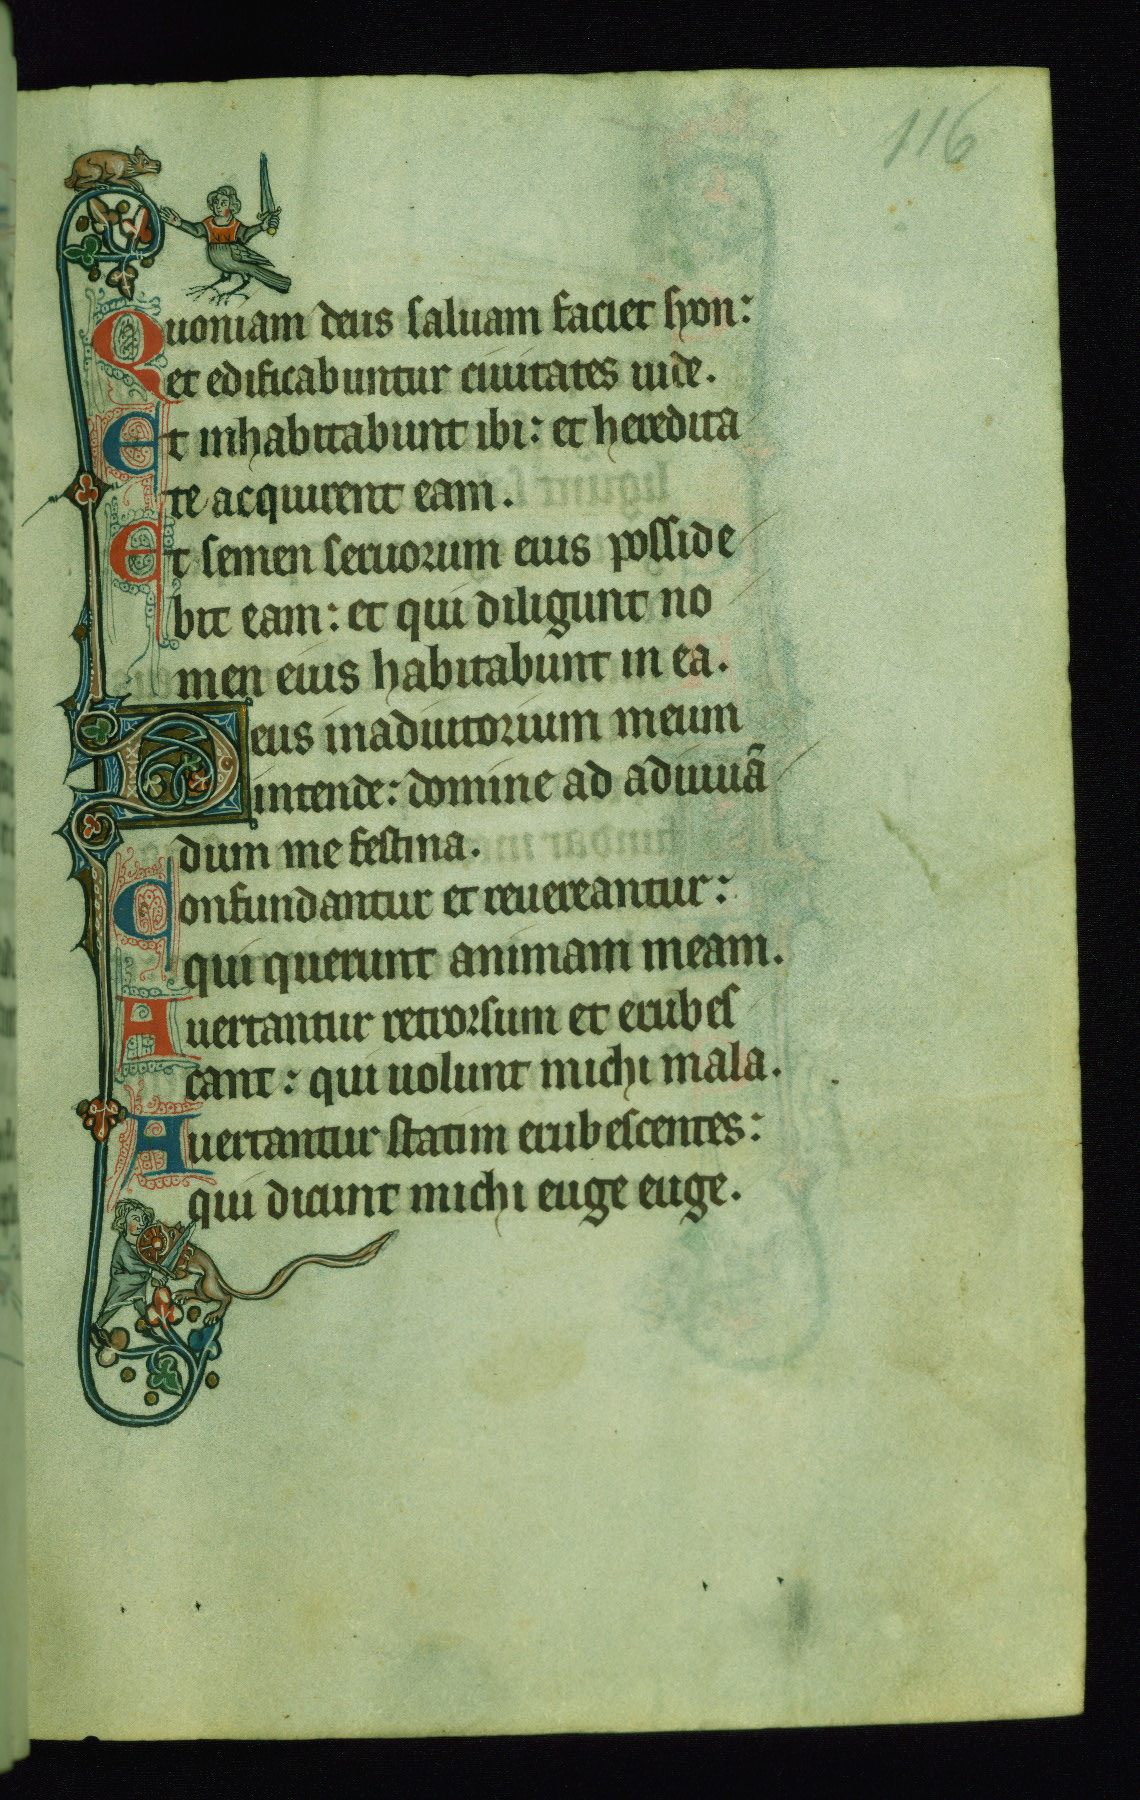 116
Quoniam deus saluam faciet syon:
et edificabuntur ciuitates iude.
Et inhabitabunt ibi: et heredita
te acquirent eam.
Et semen seruorum eius posside
bit eam: et qui diligunt no
men eius habitabunt in ea.
Deus inadiutorium meum
intende: domine ad adiuuā
dum me festina.
Confundantur et reuereantur:
qui querunt animam meam.
Auertantur retrorsum et erubes
cant: qui uolunt michi mala.
Auertantur statim erubescentes:
qui dicunt michi euge euge.